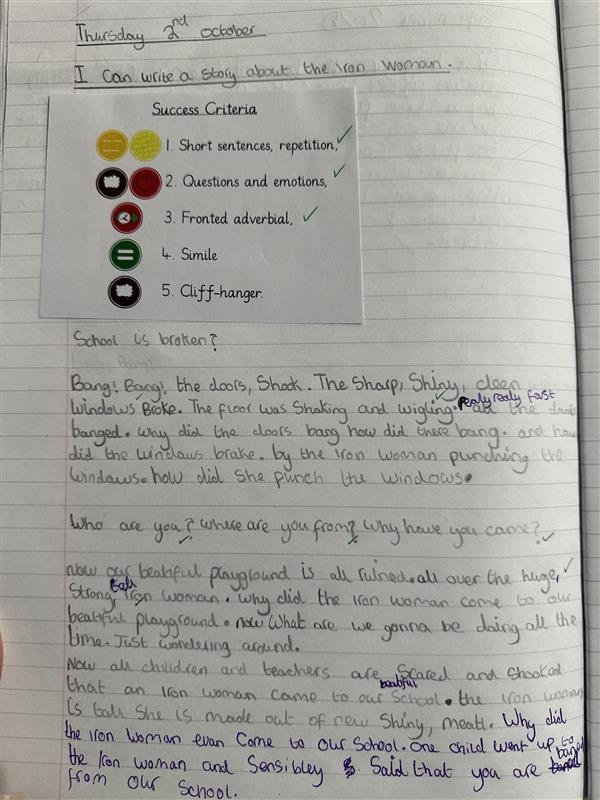 Thursday 2nd october
I can write a story about the Iron Woman.
Success Criteria
1. Short sentences, repetition,
2. Questions and emotions,
3. Fronted adverbial,
4. Simile
5. Cliff-hanger.
School is broken?
Bang! Bang! the doors, Shook. The Sharp, Shiny, cleen
windows Broke. The floor was Shaking and wigling. realy realy fast all the doors
banged. why did the doors bang how did there bang. and how
did the windows brake. by the Iron woman punching the
windows. how did She punch the windows.
Who are you? where are you from? Why have you came?
Now our beatiful playground is all ruined. all over the huge,
Strong, tall Iron woman. why did the Iron woman come to our
beatiful playground. now what are we gonna be doing all the
time. Just wondering around.
Now all children and teachers are Scared and Shooked
that an Iron woman came to our beatiful School. the Iron woman
is tall She is made out of new Shiny, meatl. Why did
the Iron Woman evan come to our School. One child went up to
the Iron woman and Sensibley Said that you are baned
from our School.